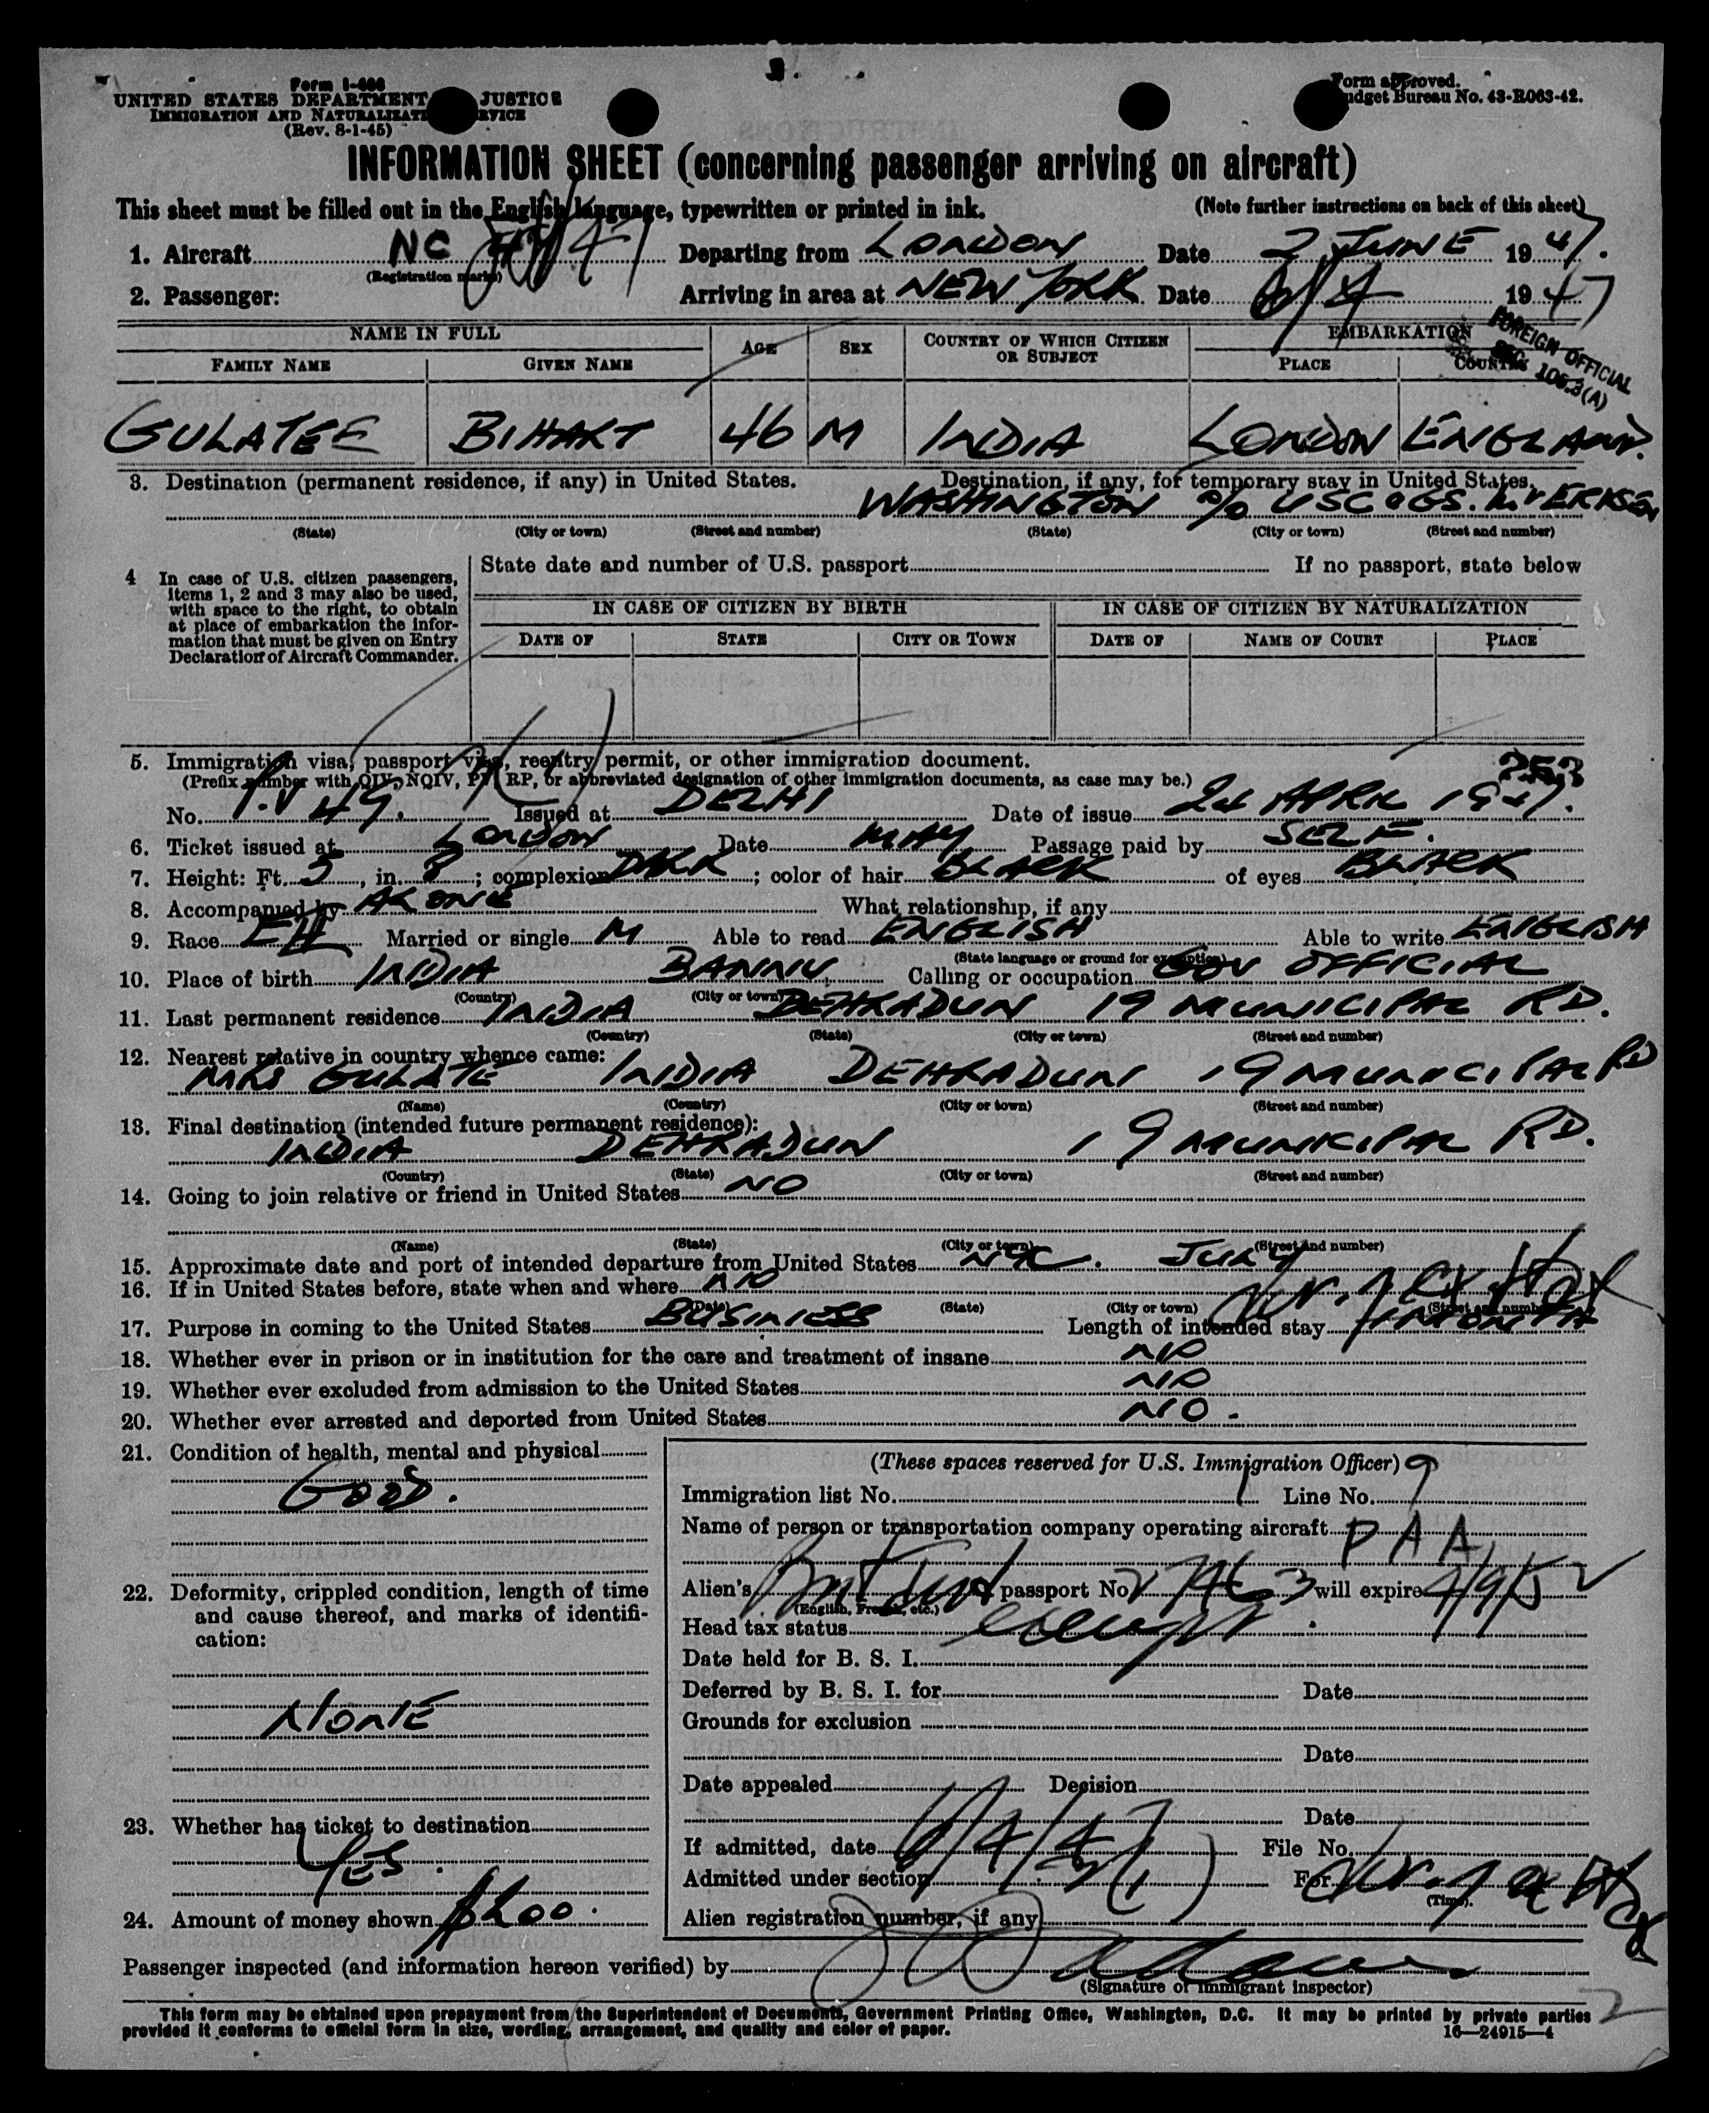 Form I-466
UNITED STATES DEPARTMENT JUSTICE
IMMIGRATION AND NATURALIZATI RVICE
(Rev. 8-1-45)
Form approved.
udget Bureau No. 43-R063-42.
INFORMATION SHEET (concerning passenger arriving on aircraft)
This sheet must be filled out in the English language, typewritten or printed in ink.
(Note further instructions on back of this sheet)
1. Aircraft NC Departing from LONDON Date 2 JUNE 1947.
(Registration marks)
2. Passenger: Arriving in area at NEW YORK Date 6/4 1947
FOREIGN OFFICIAL
SEC. 105.3(A)
NAME IN FULL AGE SEX COUNTRY OF WHICH CITIZEN OR SUBJECT EMBARKATION
FAMILY NAME GIVEN NAME PLACE COUNTRY
GULATEE BIHARI 46 M INDIA LONDON ENGLAND.
3. Destination (permanent residence, if any) in United States. Destination, if any, for temporary stay in United States.
WASHINGTON c/o USC & GS. Mr ERIKSEN
(State) (City or town) (Street and number) (State) (City or town) (Street and number)
4 In case of U.S. citizen passengers, items 1, 2 and 3 may also be used, with space to the right, to obtain at place of embarkation the information that must be given on Entry Declaration of Aircraft Commander.
State date and number of U.S. passport If no passport, state below
IN CASE OF CITIZEN BY BIRTH IN CASE OF CITIZEN BY NATURALIZATION
DATE OF STATE CITY OR TOWN DATE OF NAME OF COURT PLACE
5. Immigration visa, passport visa, reentry permit, or other immigration document.
(Prefix number with QIV, NQIV, PV, RP, or abbreviated designation of other immigration documents, as case may be.)
253
No. P.V 49. Issued at DELHI Date of issue 24 APRIL 1947.
6. Ticket issued at LONDON Date MAY Passage paid by SELF.
7. Height: Ft. 5, in. 8; complexion DARK; color of hair BLACK of eyes BLACK
8. Accompanied by ALONE What relationship, if any
9. Race EI Married or single M Able to read ENGLISH Able to write ENGLISH
(State language or ground for exemption)
10. Place of birth INDIA BANNU Calling or occupation GOV OFFICIAL
(Country) (City or town)
11. Last permanent residence INDIA DEHRADUN 19 MUNICIPAL RD.
(Country) (State) (City or town) (Street and number)
12. Nearest relative in country whence came:
MRS GULATE INDIA DEHRADUN 19 MUNICIPAL RD
(Name) (Country) (City or town) (Street and number)
13. Final destination (intended future permanent residence):
INDIA DEHRADUN 19 MUNICIPAL RD.
(Country) (State) (City or town) (Street and number)
14. Going to join relative or friend in United States NO
(Name) (State) (City or town) (Street and number)
15. Approximate date and port of intended departure from United States NYC. JULY
16. If in United States before, state when and where NO
(Date) (State) (City or town) (Street and number)
17. Purpose in coming to the United States BUSINESS Length of intended stay 1 MONTH
18. Whether ever in prison or in institution for the care and treatment of insane NO
19. Whether ever excluded from admission to the United States NO
20. Whether ever arrested and deported from United States NO.
21. Condition of health, mental and physical
GOOD.
22. Deformity, crippled condition, length of time and cause thereof, and marks of identification:
NONE
23. Whether has ticket to destination
YES.
24. Amount of money shown $200.
(These spaces reserved for U.S. Immigration Officer)
Immigration list No. 1 Line No. 9
Name of person or transportation company operating aircraft PAA
Alien's Brit Ind passport No. 27463 will expire 4/9/52
(English, French, etc.)
Head tax status exempt
Date held for B. S. I.
Deferred by B. S. I. for Date
Grounds for exclusion
Date
Date appealed Decision
Date
If admitted, date 6/4/47 File No.
Admitted under section 3(1) For
(Time).
Alien registration number, if any
Passenger inspected (and information hereon verified) by
(Signature of immigrant inspector)
This form may be obtained upon prepayment from the Superintendent of Documents, Government Printing Office, Washington, D.C. It may be printed by private parties
provided it conforms to official form in size, wording, arrangement, and quality and color of paper.
16—24915—4
2